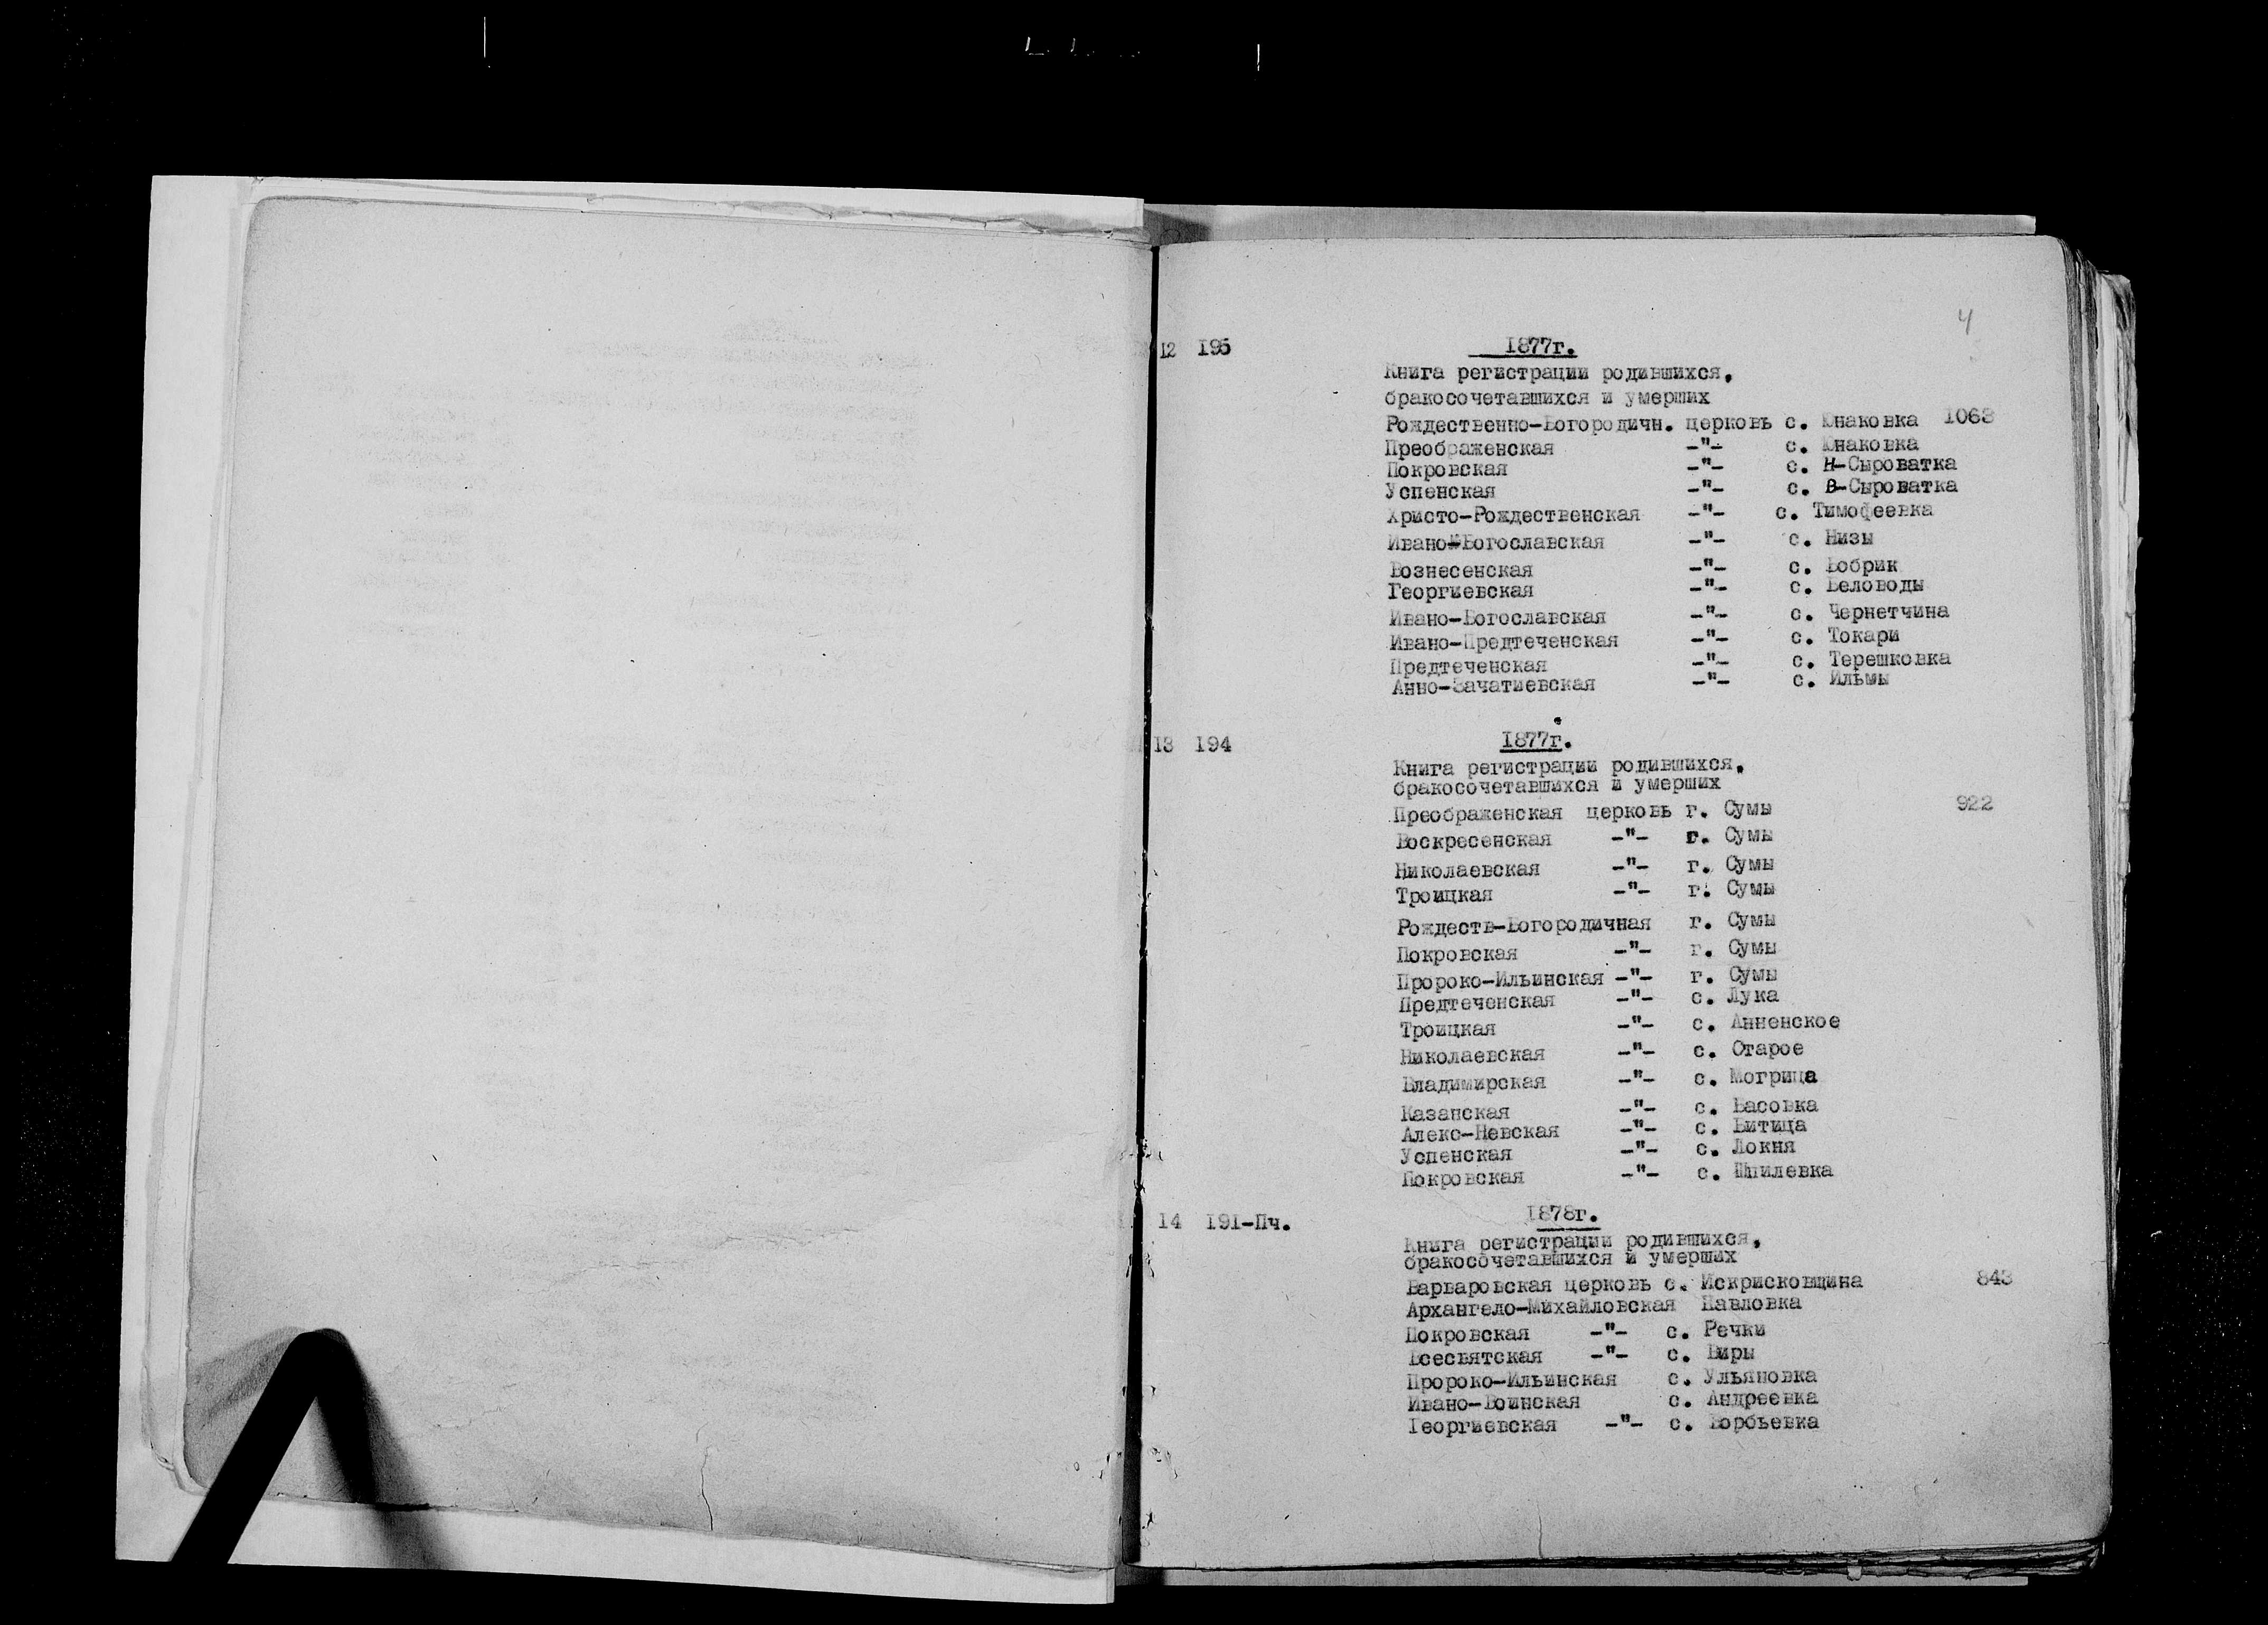 4
12 195 1877г.
Книга регистрации родившихся,
бракосочетавшихся и умерших
Рождественно-Богородичн. церковь с. Юнаковка 1063
Преображенская -"- с. Юнаковка
Покровская -"- с. Н-Сыроватка
Успенская -"- с. В-Сыроватка
Христо-Рождественская -"- с. Тимофеевка
Ивано-Богославская -"- с. Низы
Вознесенская -"- с. Бобрик
Георгиевская -"- с. Беловоды
Ивано-Богославская -"- с. Чернетчина
Ивано-Предтеченская -"- с. Токари
Предтеченская -"- с. Терешковка
Анно-Зачатиевская -"- с. Ильмы
13 194 1877г.
Книга регистрации родившихся,
бракосочетавшихся и умерших
Преображенская церковь г. Сумы 922
Воскресенская -"- г. Сумы
Николаевская -"- г. Сумы
Троицкая -"- г. Сумы
Рождеств-Богородичная г. Сумы
Покровская -"- г. Сумы
Пророко-Ильинская -"- г. Сумы
Предтеченская -"- с. Лука
Троицкая -"- с. Анненское
Николаевская -"- с. Старое
Владимирская -"- с. Могрица
Казанская -"- с. Басовка
Алекс-Невская -"- с. Битица
Успенская -"- с. Локня
Покровская -"- с. Шпилевка
14 191-Пч. 1878г.
Книга регистрации родившихся,
бракосочетавшихся и умерших
Варваровская церковь с. Искрисковщина 843
Архангело-Михайловская Павловка
Покровская -"- с. Речки
Всесвятская -"- с. Виры
Пророко-Ильинская с. Ульяновка
Ивано-Воинская с. Андреевка
Георгиевская -"- с. Ворбьевка